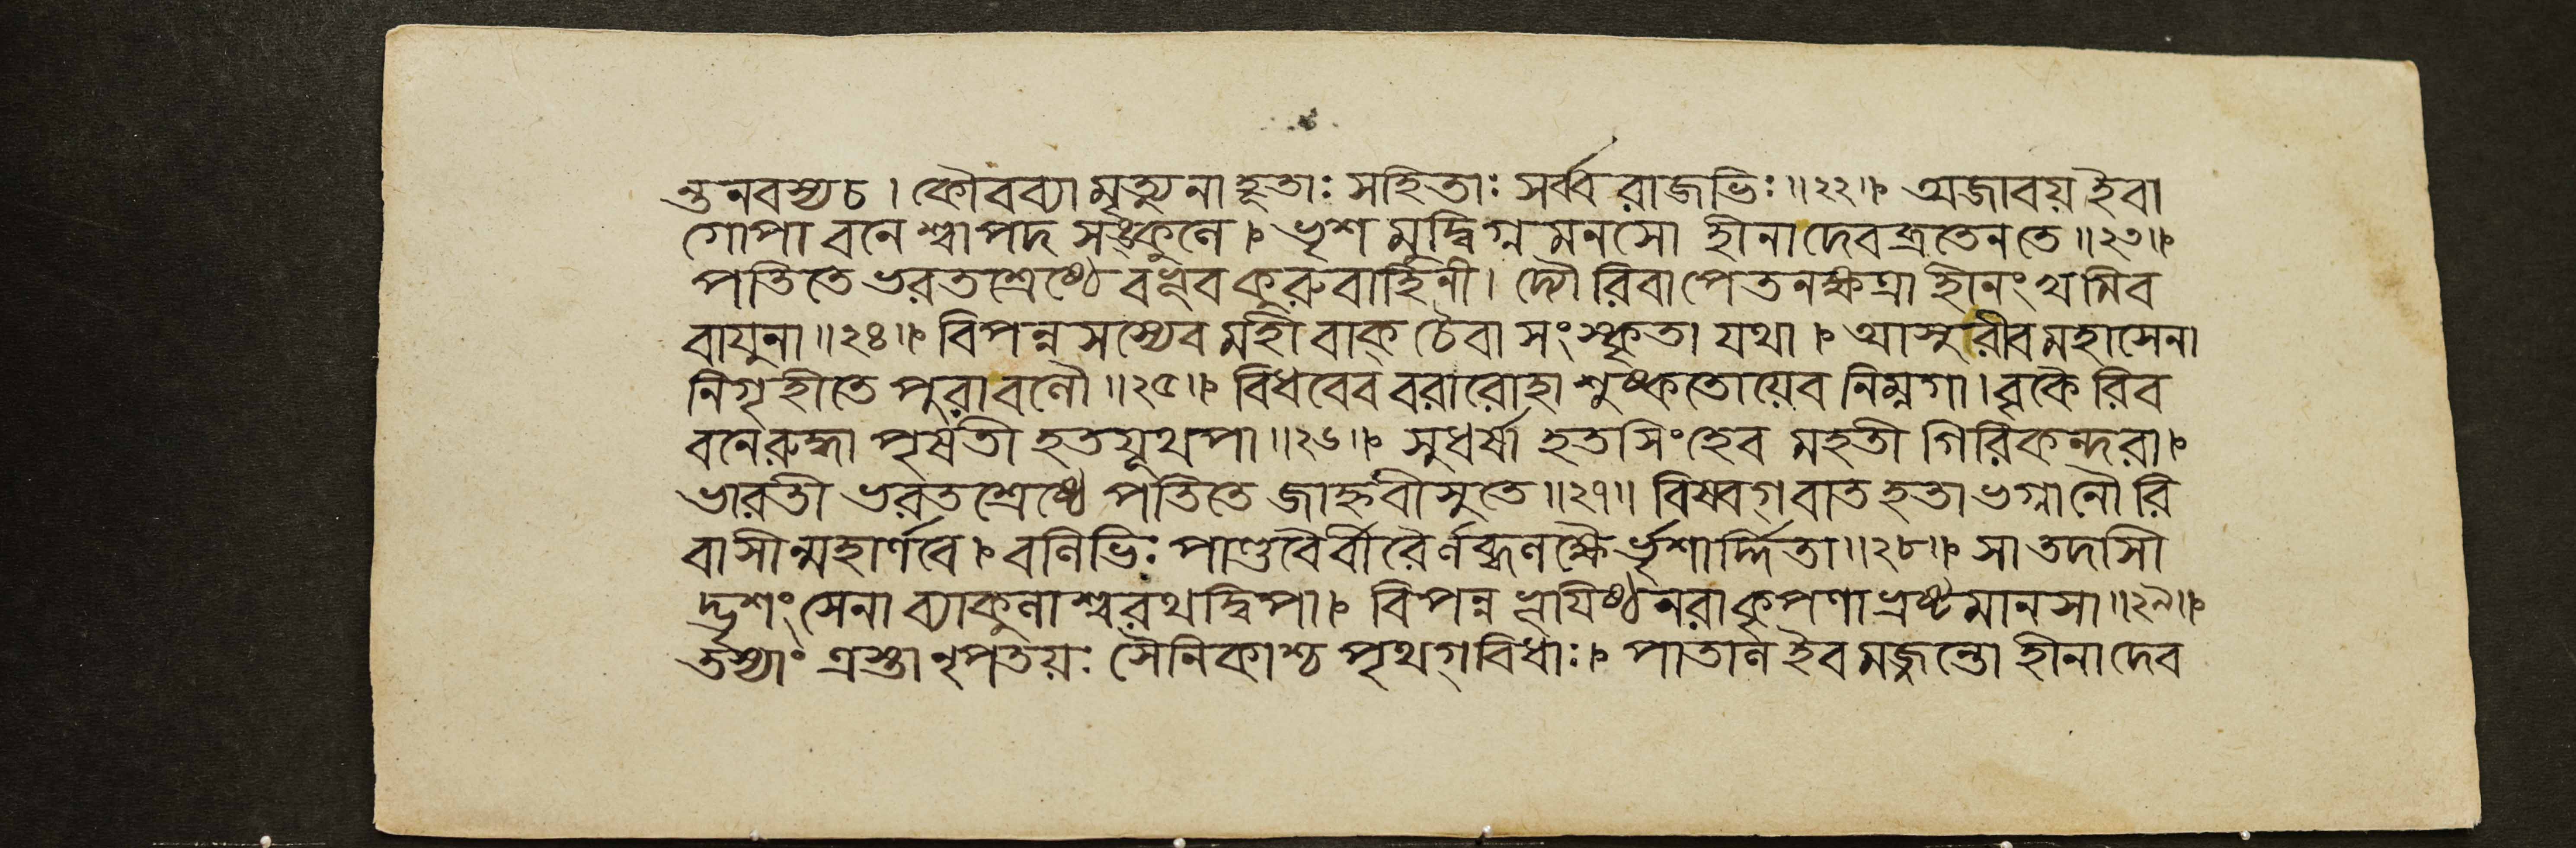 ন্তনবস্য চ । কৌরব্যা মৃত্যুনা হূতাঃ সহিতাঃ সর্ব্ব রাজভিঃ ॥২২॥ অজাবয় ইবা
গোপা বনে শ্বাপদ সঙ্কুলে । ভৃশ মুদ্বিগ্ন মনসো হীনা দেবব্রতেন তে ॥২৩॥
পতিতে ভরতশ্রেষ্ঠে বভূব কুরুবাহিনী । দ্যৌ রিবাপেতনক্ষত্রা হীনং খমিব
বায়ুনা ॥২৪॥ বিপন্ন সস্যেব মহী বাক্ চৈবা সংস্কৃতা যথা । আসুরীব মহাসেনা
নিগৃহীতে পুরা বলৌ ॥২৫॥ বিধবেব বরারোহা শুষ্কতোয়েব নিম্নগা । বৃকৈ রিব
বনে রুদ্ধা পৃষতী হতযূথপা ॥২৬॥ সুধর্ষা হতসিংহেব মহতী গিরিকন্দরা ।
ভারতী ভরতশ্রেষ্ঠে পতিতে জাহ্নবীসুতে ॥২৭॥ বিষ্বগ্ বাত হতা ভগ্না নৌ রি
বাসীন্মহার্ণবে । বলিভিঃ পাণ্ডবৈর্বীরৈর্লব্ধলক্ষৈ র্ভৃশার্দ্দিতা ॥২৮॥ সা তদাসী
দ্ভৃশং সেনা ব্যাকুলাশ্বরথদ্বিপা । বিপন্ন ভূয়িষ্ঠ নরা কৃপণা ধ্রষ্টমানসা ॥২৯॥
তস্যাং ত্রস্তা নৃপতয়ঃ সৈনিকাশ্চ পৃথগ্ বিধাঃ । পাতাল ইব মজ্জন্তো হীনা দেব